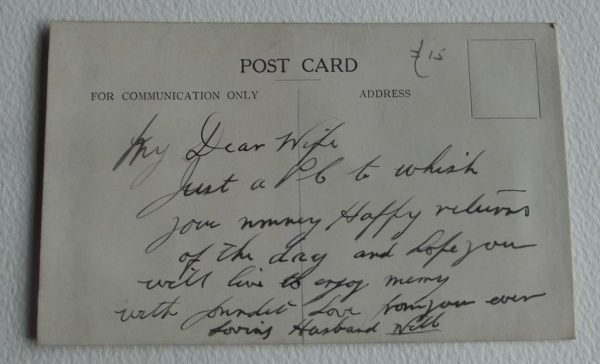 £15
POST CARD
FOR COMMUNICATION ONLY ADDRESS
My Dear Wife
Just a PC to whish
you Happy returns
of the day and hope you
will live to enjoy meny
with Love from you ever
Loving Husband Will